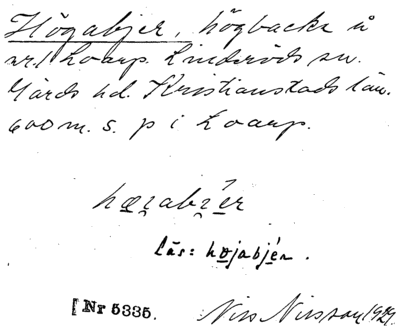 Högabjer, högbacke å
nr 1 Loarp. Linderöds sn.
Gärds hd. Kristianstads län.
600 m. s. p i Loarp.
hœɀabɀér
läs: højabjén.
[Nr 5335.
Nils Nilsson, 1921.